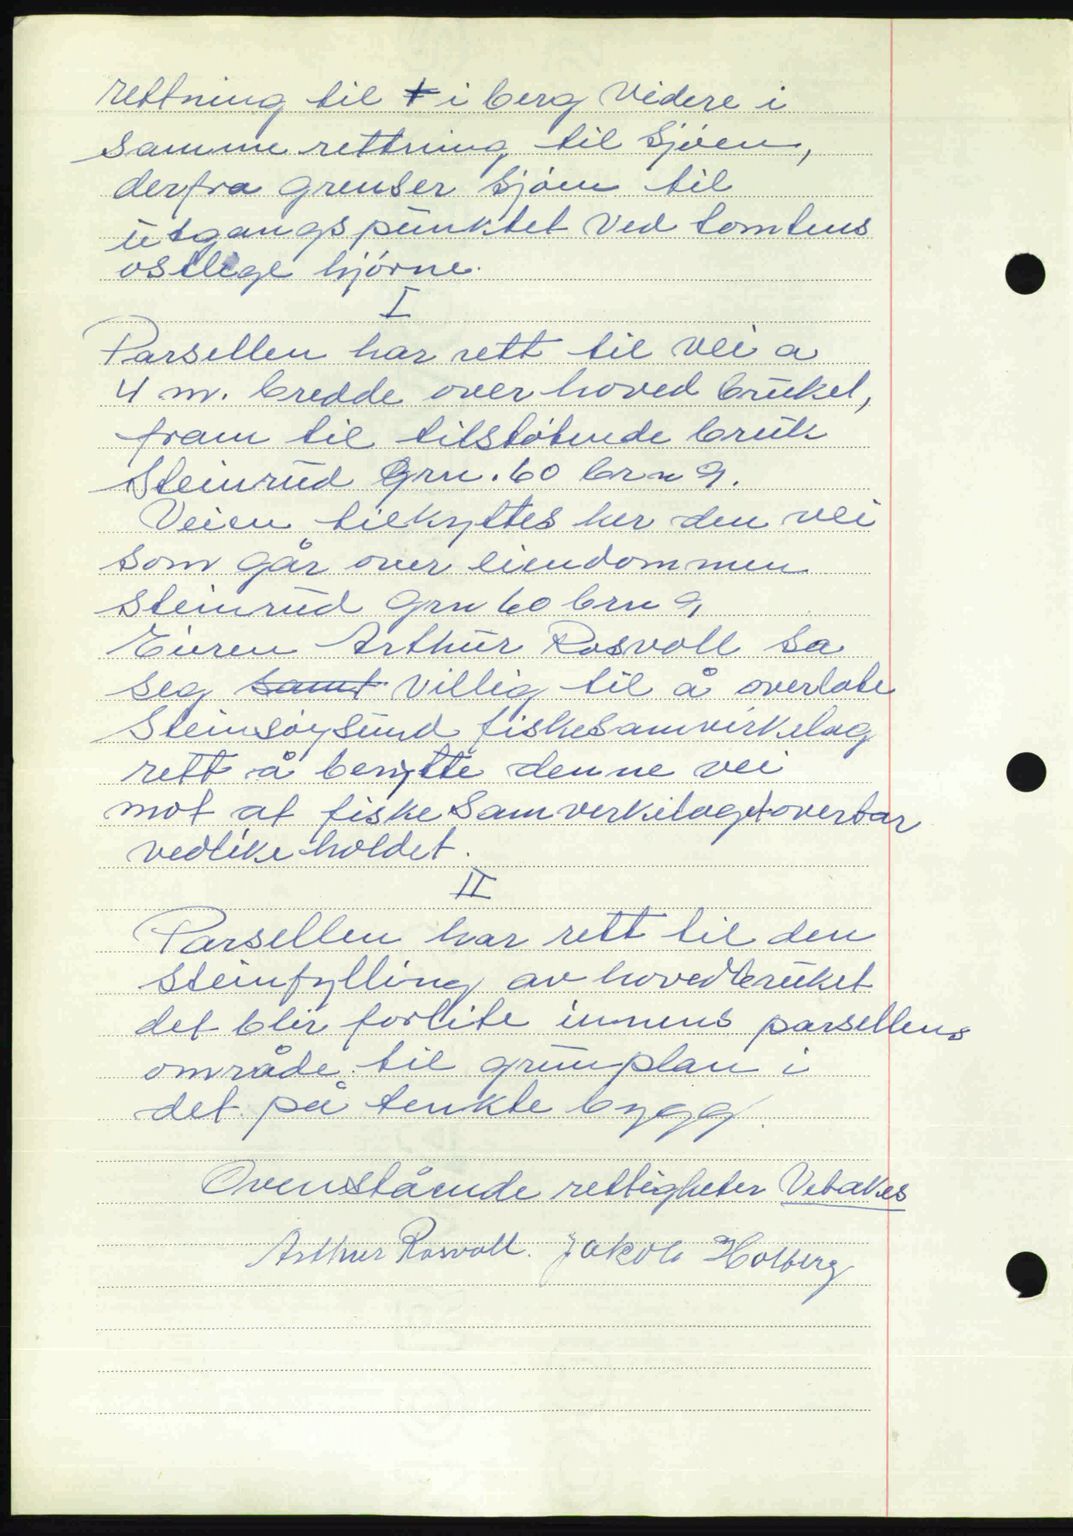 rettning til + i berg Videre i
samme rettning til Sjøen,
derfra grenser Sjøen til
utgangspunktet Ved tomtens
østlige hjørne.
I
Parsellen har rett til vei a
4 m. bredde over hoved bruket,
fram til tilstøtende bruk
Steinrud Grn. 60 brn 9.
Veien tilknyttes her den vei
som går over eiendommen
Steinrud Grn 60 brn 9
Eieren Arthur Rosvoll sa
seg samt villig til å overlate
Steinsøysund fiskesamvirkelag
rett å benytte denne vei
mot at fiskeSamverkelaget overtar
vedlike holdet.
II
Parsellen har rett til den
steinfylling av hovedbruket
det blir forlite innens parsellens
område til grunplan i
det på tenkte bygg.
Ovenstående rettigheter Vetakes
Arthur Rosvoll. Jakob Holberg